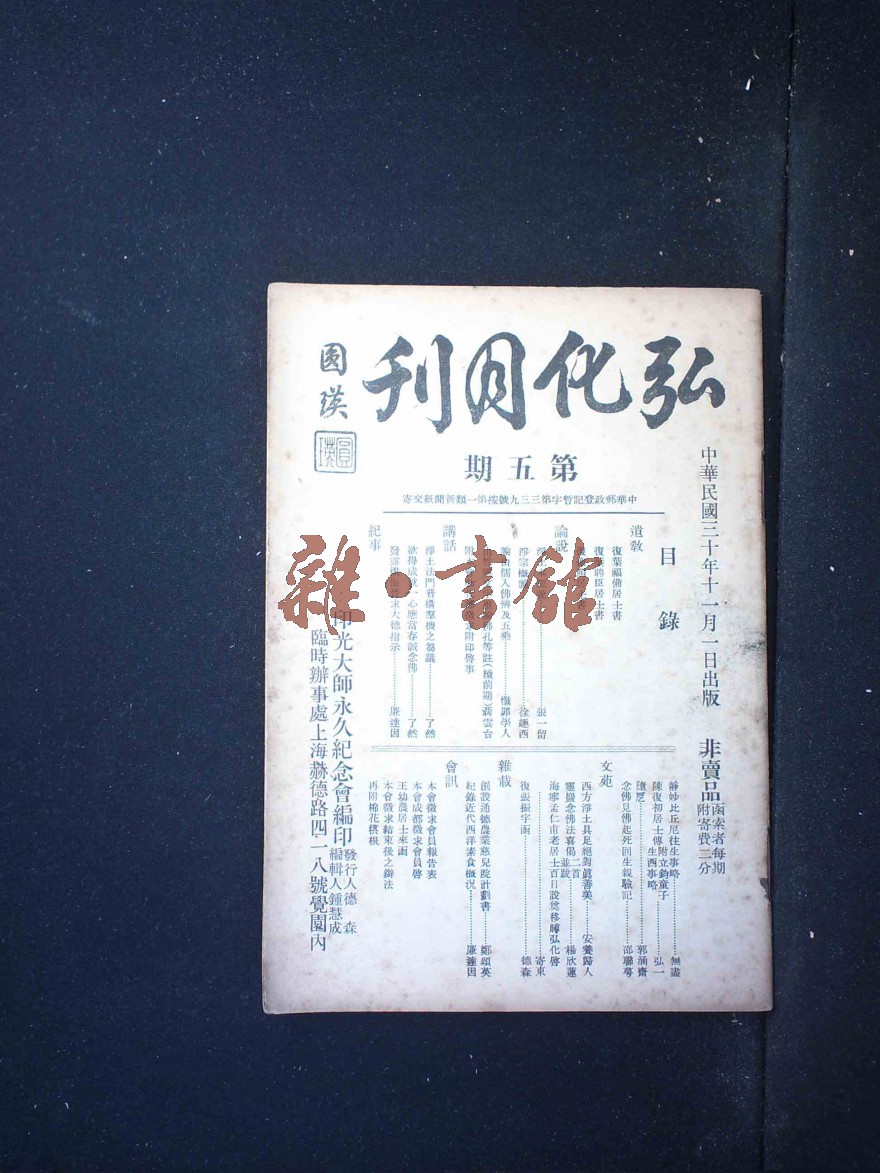 弘化月刊
圓瑛
圓瑛
第五期
中華郵政登記暫字第三三九號按第一類新聞紙交寄
中華民國三十年十一月一日出版
非賣品
函索者每期
附寄費二分
目錄
遺教
復葉福備居士書
復葉聘臣居士書
論說
張一留
淨宗概
徐蘊西
儒入佛
及五乘
懺罪學人
孔等註(續前期)
蔣雲台
附印啓事
講話
淨土法門普攝羣機之芻議
了然
欲得成就一心應當存誠念佛
了然
求大德指示
廉達因
紀事
靜妙比丘尼往生事略
無盡
陳復初居士傳附立鈞童子生西事略
弘一
郭涵齋
念佛見佛起死回生親驗記
邵聯萼
文苑
西方淨土具足絕對眞善美
安養歸人
靈巖念佛法喜偈二首並跋
楊欣蓮
海寧孟仁甫老居士百日設奠移賻弘化啓
寄東
復張振宇函
德森
雜載
創設通德農業慈兒院計劃書
鄭頌英
紀錄近代西洋素食概況
廉達因
會訊
本會徵求會員報告表
本會成都徵求會員啓
王幼農居士來函
本會徵求結束後之辦法
再附棉花穫根
印光大師永久紀念會編印
發行人德森
編輯人鍾慧成
臨時辦事處上海赫德路四一八號覺園內
雜·書館